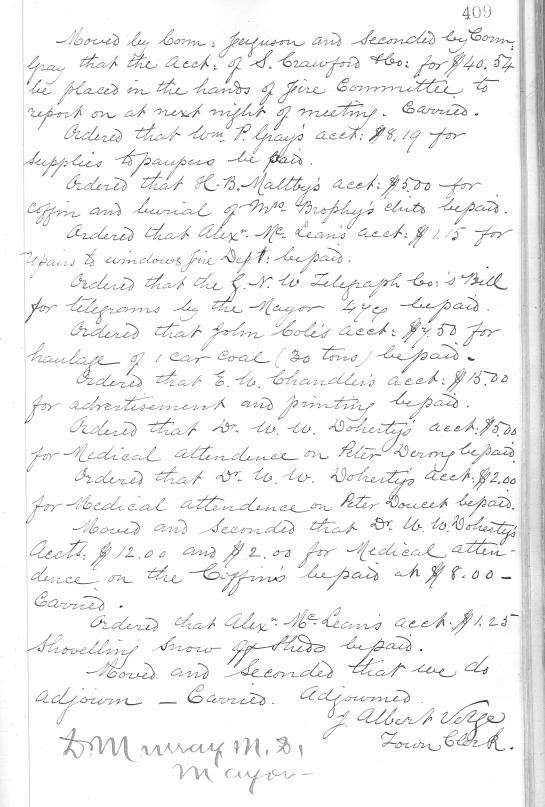 409
Moved by Conn: Ferguson and Seconded by Conn:
Gray that the Acct: of S. Crawford & Co: for $40.54
be placed in the hands of Fire Committee to
report on at next night of meeting. Carried.
Ordered that Wm. P. Gray's acct: $8.19 for
supplies to paupers be paid.
Ordered that H. B. Maltby's acct: $5.00 for
coffin and burial of Mrs. Brophy's be paid.
Ordered that Alexr. McLean's acct: $1.15 for
repairs to windows Fire Dept: be paid.
Ordered that the G. N. W. Telegraph Co:'s Bill
for telegrams by the Mayor be paid.
Ordered that John Cole's acct: $7.50 for
haulage of 1 car coal (30 tons) be paid.
Ordered that E. W. Chandler's acct: $15.00
for advertisement and printing be paid.
Ordered that Dr. W. W. Doherty's acct: $5.00
for Medical attendence on Peter be paid.
Ordered that Dr. W. W. Doherty's acct: $2.00
for Medical attendence on Peter Doucet be paid.
Moved and Seconded that Dr. W. W. Doherty's
Accts: $12.00 and $2.00 for Medical atten-
dence on the Coffin's be paid at $8.00 -
Carried.
Ordered that Alexr. McLean's acct: $1.25
Shovelling Snow off Sheds be paid.
Moved and Seconded that we do
adjourn - Carried. Adjourned.
J Albert Verge
Town Clerk.
D. Murray M. D.,
Mayor -